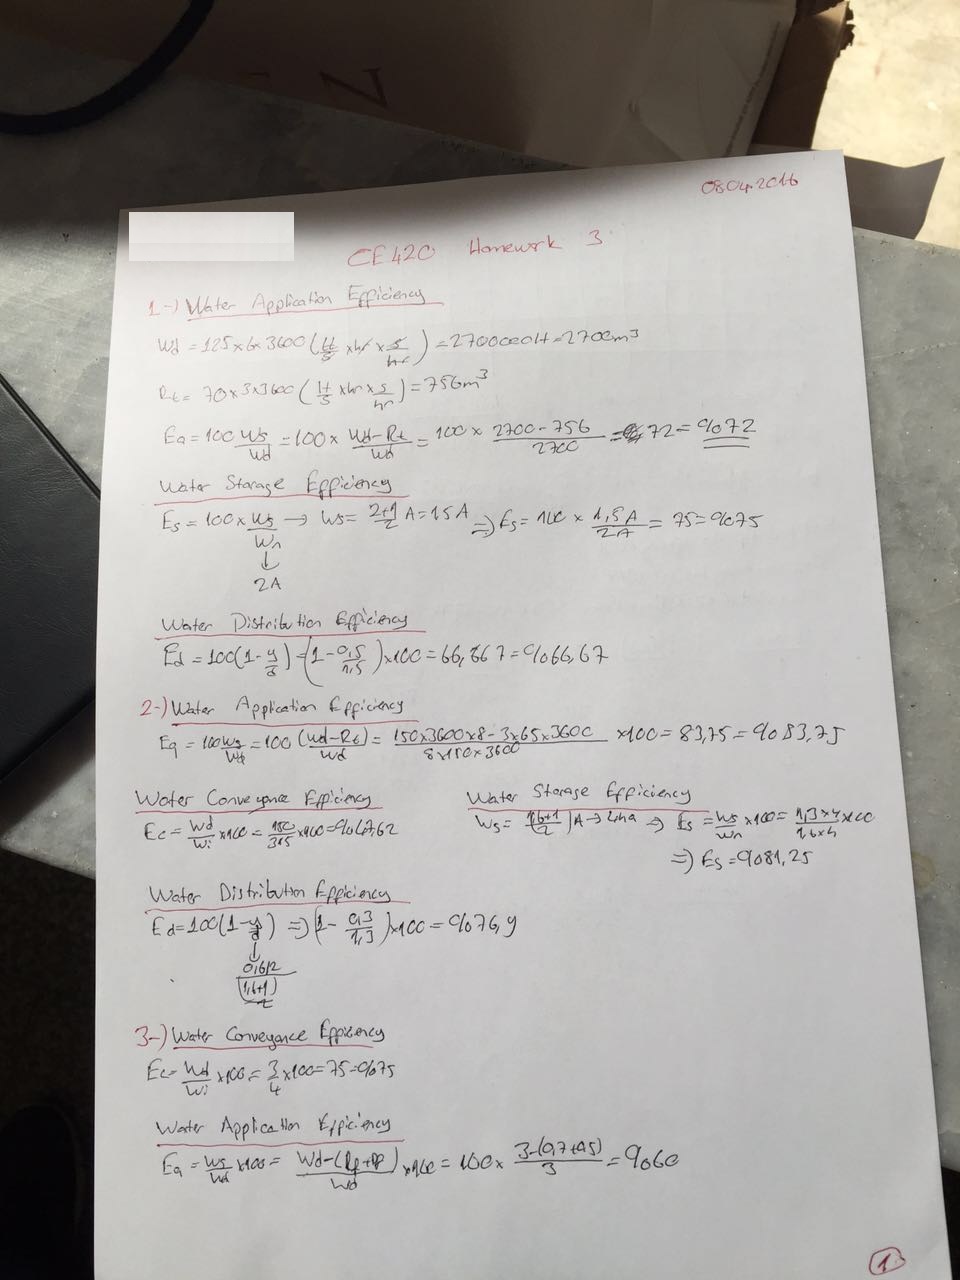 08.04.2016
CE420 Homework 3
1-) Water Application Efficiency
Wd = 125 x 6 x 3600 (lt/s x hr x s/hr) = 2700000 lt = 2700m³
Rt = 70 x 3 x 3600 (lt/s x hr x s/hr) = 756m³
Ea = 100 Ws/Wd = 100 x Wd-Rt/Wd = 100 x 2700-756/2700 = 72 = %72
Water Storage Efficiency
Es = 100 x Ws/Wn → Ws = 2+1/2 A = 1.5 A ⇒ Es = 100 x 1,5A/2A = 75 = %75
↓
2A
Water Distribution Efficiency
Ed = 100(1-y/d) = (1-0,5/1,5) x 100 = 66,667 = %66,67
2-) Water Application Efficiency
Ea = 100 Ws/Wd = 100 (Wd-Rt)/Wd = 150x3600x8-3x65x3600/8x150x3600 x100 = 83,75 = %83,75
Water Conveyance Efficiency
Ec = Wd/Wi x 100 = 150/315 x 100 = %47,62
Water Storage Efficiency
Ws = (1,6+1/2) A → 4ha ⇒ Es = Ws/Wn x 100 = 1,3x4/1,6x4 x 100
⇒ Es = %81,25
Water Distribution Efficiency
Ed = 100(1-y/d) ⇒ (1-0,3/1,3) x 100 = %76,9
↓
0,6/2
(1,6+1)/2
3-) Water Conveyance Efficiency
Ec = Wd/Wi x 100 = 3/4 x 100 = 75 = %75
Water Application Efficiency
Ea = Ws/Wd x 100 = Wd-(Rf+DF)/Wd x 100 = 100 x 3-(0,7+0,5)/3 = %60
1